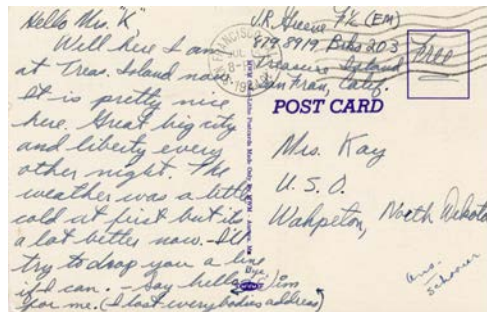 Hello Mrs. "K"
Well here I am
at Treas. Island now.
It is pretty nice
here. Great big city
and liberty every
other night. The
weather was a little
cold at first but its
a lot better now. I'll
try to drop you a line
if I can. - Say hello
for me. (I lost everybodies address)
Bye,
Jim
J.R. Greene F 1/c (EM)
879 8919 Bks 203
Treasure Island
San Fran, Calif.
Free
POST CARD
Mrs. Kay
U.S.O.
Wahpeton, North Dakota
ans.